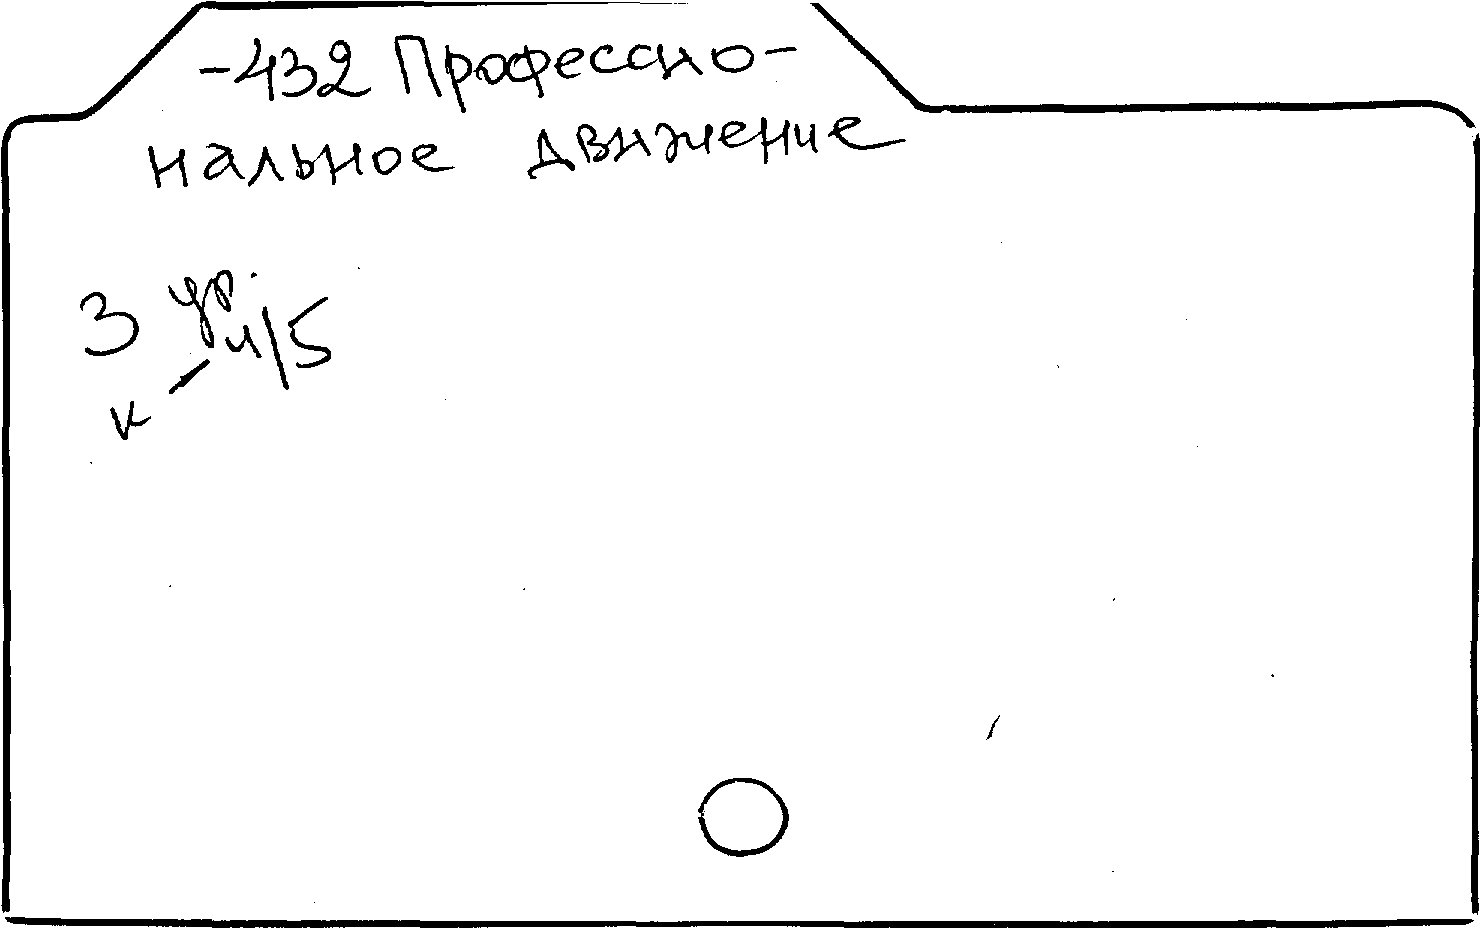 -432 Профессио-
нальное движение
3 ур.
к 4/5